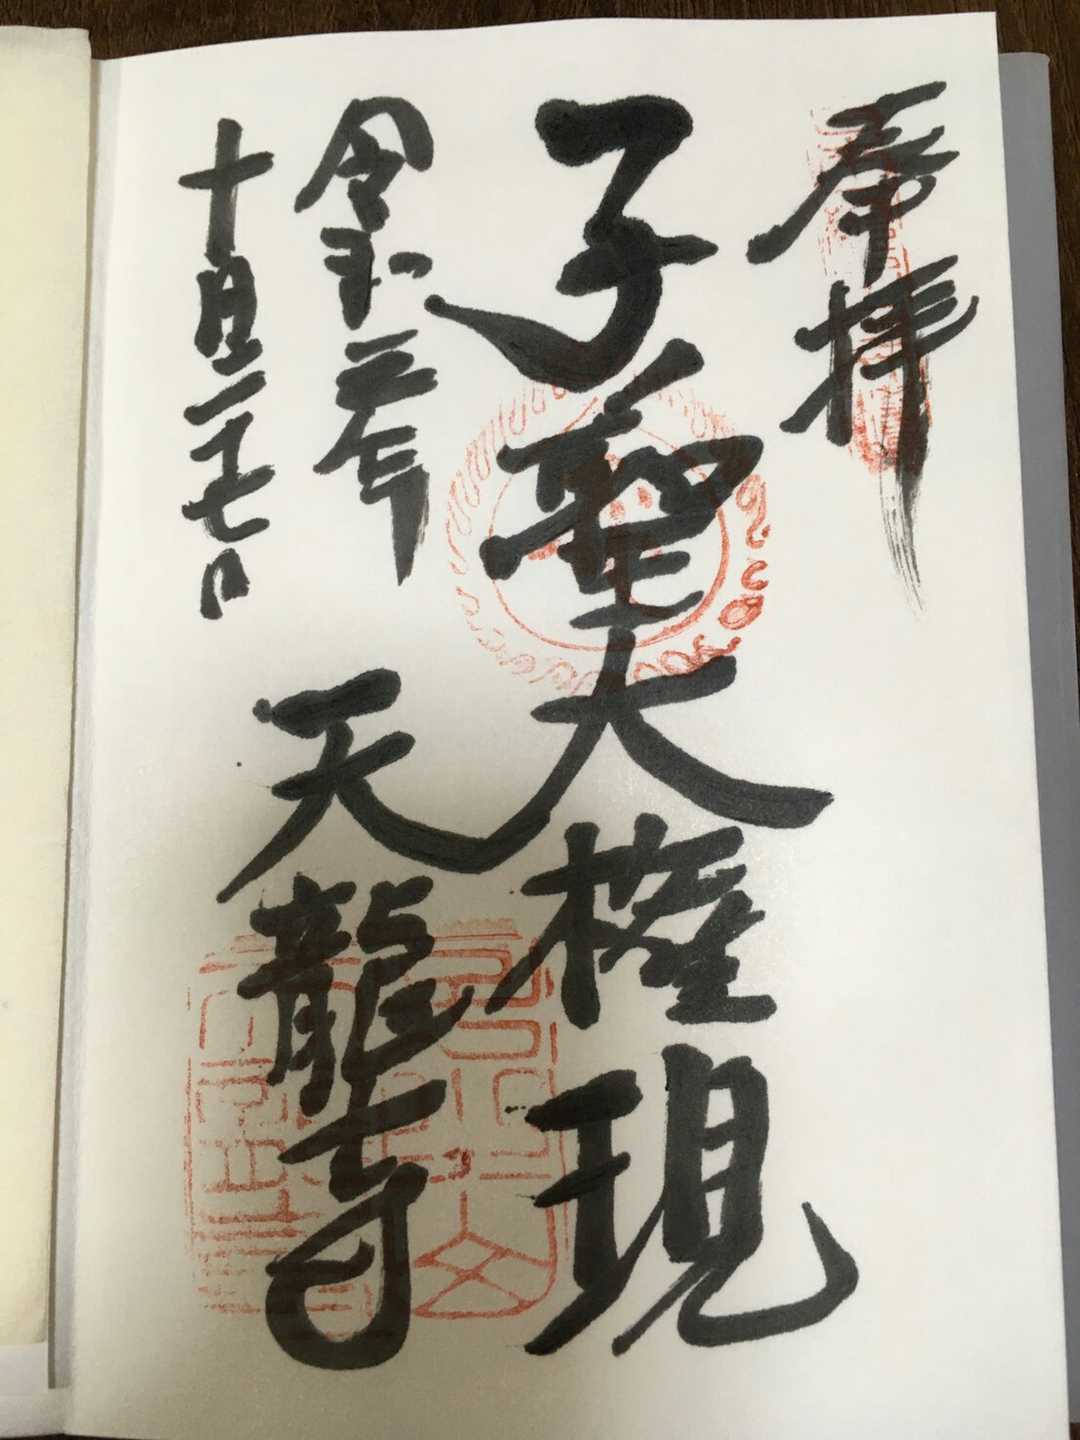 奉拝
子聖大権現
令和三年
十月二十七日
天龍寺